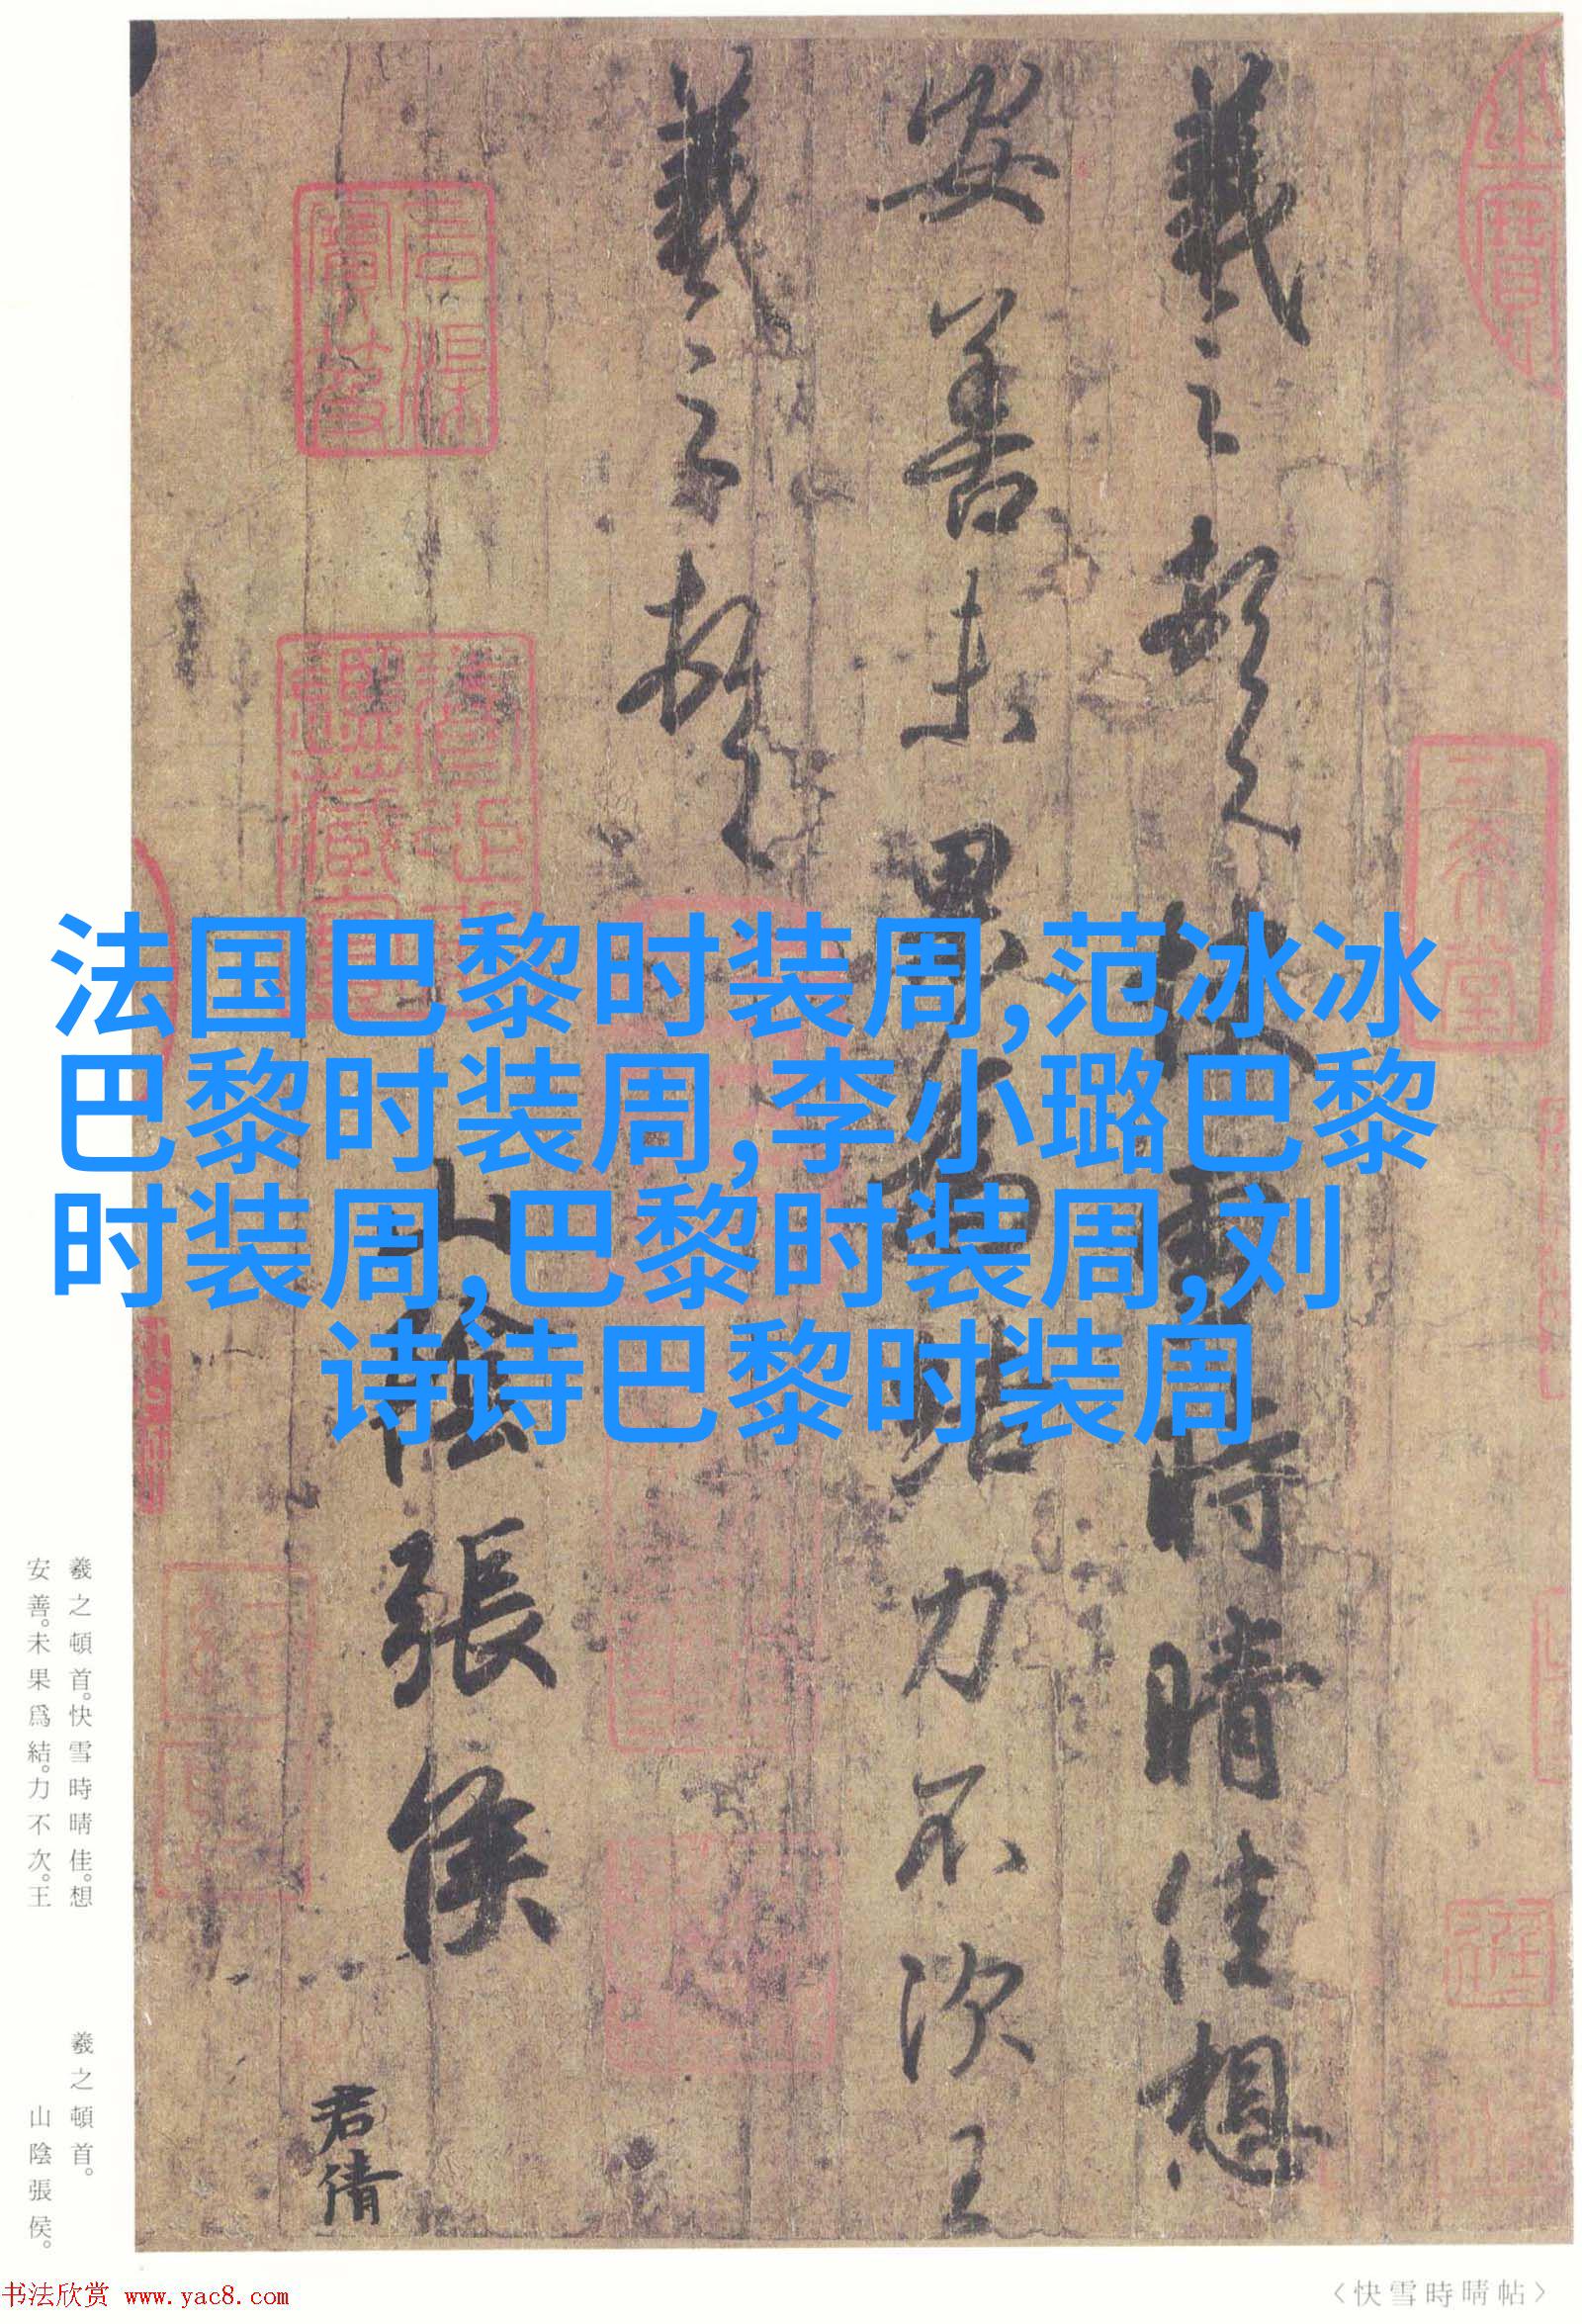 羲之頓首快雪時晴佳想
安善未果為結力不次王
羲之頓首
山陰張侯
君倩
法国巴黎时装周,范冰冰
巴黎时装周,李小璐巴黎
时装周,巴黎时装周,刘
诗诗巴黎时装周
羲之頓首。快雪時晴佳。想
安善。未果爲結。力不次。王
羲之頓首。
山陰張侯。
三希堂
〈快雪時晴帖〉
书法欣赏 www.yac8.com